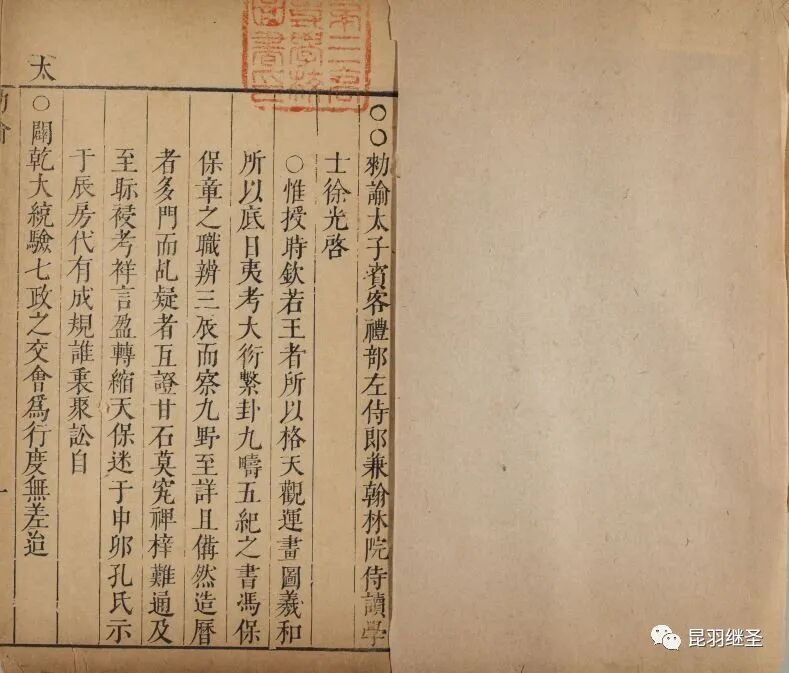 第三高
等學校
圖書印
○○勑諭太子賓客禮部左侍郎兼翰林院侍讀學
士徐光啓
○惟授時欽若王者所以格天觀運畫圖羲和
所以底日夷考大衍繫卦九疇五紀之書馮保
保章之職辨三辰而察九野至詳且備然造曆
者多門而乩疑者互證甘石莫究裨梓難通及
至眎祲考祥言盈轉縮天保迷于申卯孔氏示
于辰房代有成規誰裏聚訟自
太○闢乾大統驗七政之交會爲行度無差迨
一
昆羽继圣